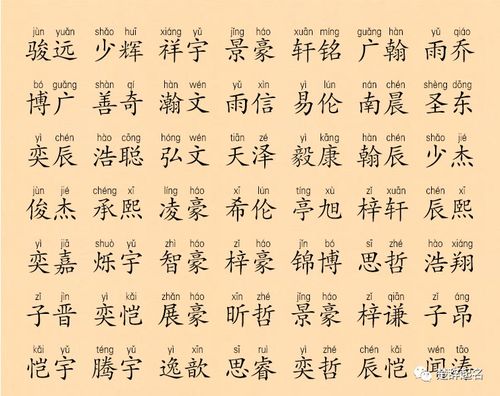 jùn yuǎn shǎo huī xiáng yǔ jǐng háo xuān míng guǎng hàn yǔ qiáo
骏远 少辉 祥宇 景豪 轩铭 广翰 雨乔
bó guǎng shàn qí hàn wén yǔ xìn yì lún nán chén shèng dōng
博广 善奇 瀚文 雨信 易伦 南晨 圣东
yì chén hào cōng hóng wén tiān zé yì kāng hàn chén shǎo jié
奕辰 浩聪 弘文 天泽 毅康 翰辰 少杰
jùn jié chéng xī líng háo xī lún tíng xù zǐ xuān chén xī
俊杰 承熙 凌豪 希伦 亭旭 梓轩 辰熙
yì jiā shuò yǔ zhì háo zǐ háo jǐn bó sī zhé hào xiáng
奕嘉 烁宇 智豪 梓豪 锦博 思哲 浩翔
zǐ jìn yì kǎi zhǎn háo xīn zhé jǐng háo zǐ qiān zǐ áng
子晋 奕恺 展豪 昕哲 景豪 梓谦 子昂
kǎi yǔ téng yǔ yì xīn sī ruì yì zhé chén kǎi wén tāo
恺宇 腾宇 逸歆 思睿 奕哲 辰恺 闻涛